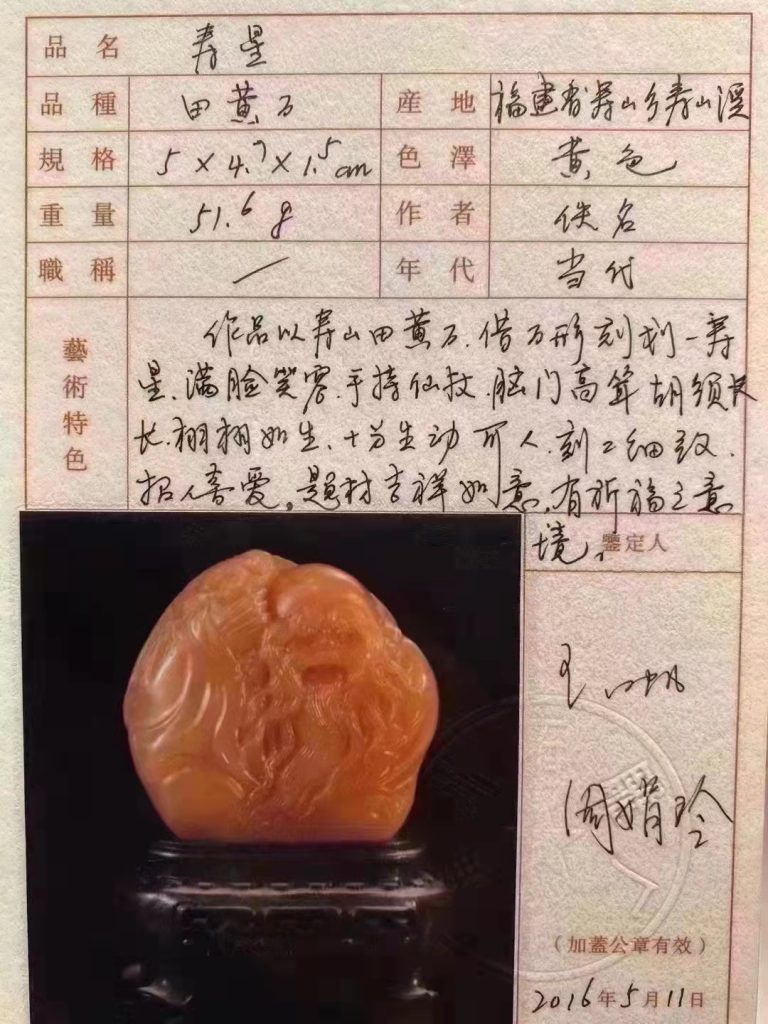 品名 寿星
品種 田黄石 産地 福建省寿山乡寿山溪
規格 5×4.7×1.5cm 色澤 黄色
重量 51.6g 作者 佚名
職稱 — 年代 当代
藝術特色
作品以寿山田黄石.借石形刻划一寿
星.满脸笑容.手持仙杖.脑门高耸胡须长
长.栩栩如生.十分生动可人.刻工细致.
招人喜爱,题材吉祥如意.有祈福之意
境。
鑒定人
周娟玲
（加蓋公章有效）
2016年5月11日